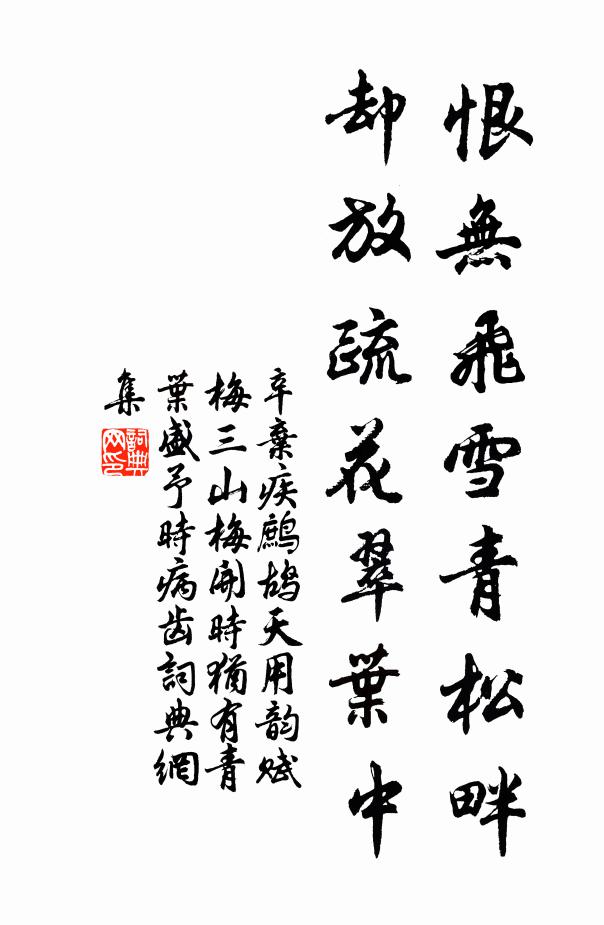 恨無飛雪青松畔
却放疏花翠葉中
辛棄疾鷓鴣天用韵賦
梅三山梅開時猶有青
葉盛予時病齒詞典網
集
詞典
网印